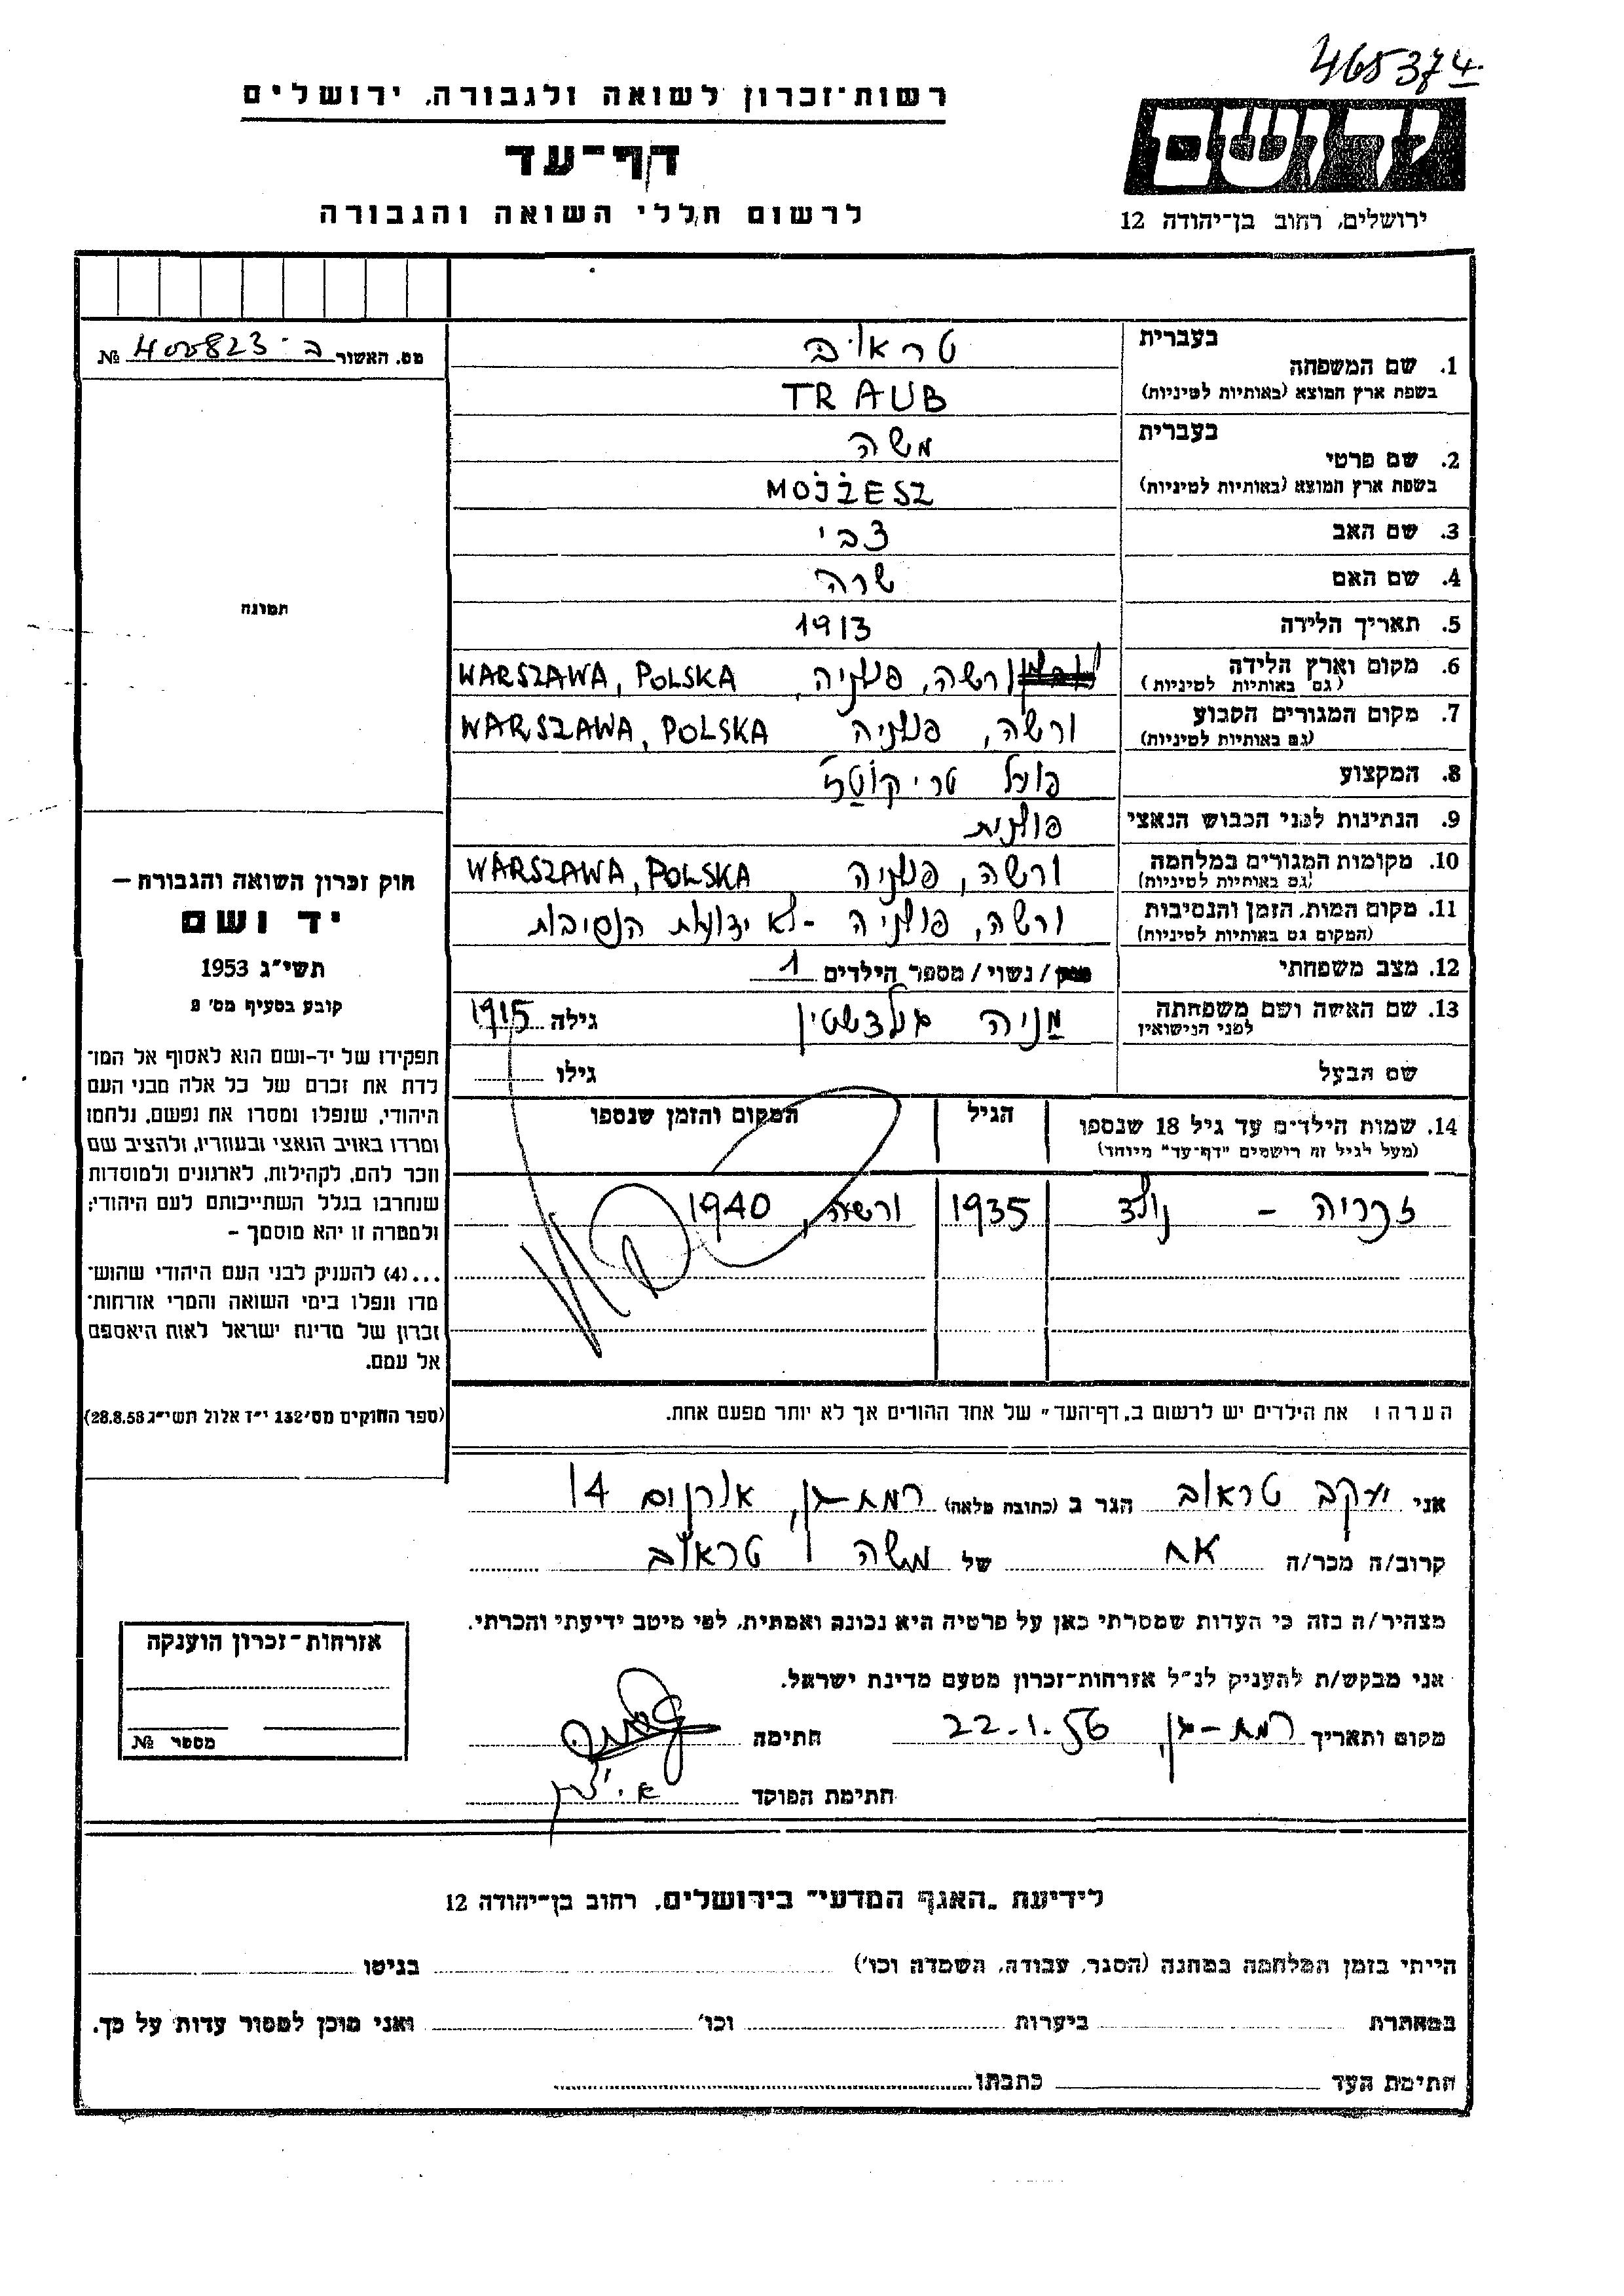 465374
רשות־זכרון לשואה ולגבורה, ירושלים
דף־עד
לרשום חללי השואה והגבורה
יד ושם
ירושלים, רחוב בן־יהודה 12
מס. האשור ב־400823 №
תמונה
חוק זכרון השואה והגבורה –
יד ושם
תשי״ג 1953
קובע בסעיף מס׳ 2
תפקידו של יד-ושם הוא לאסוף אל המו־
לדת את זכרם של כל אלה מבני העם
היהודי, שנפלו ומסרו את נפשם, נלחמו
ומרדו באויב הנאצי ובעוזריו, ולהציב שם
וזכר להם, לקהילות, לארגונים ולמוסדות
שנחרבו בגלל השתייכותם לעם היהודי;
ולמטרה זו יהא מוסמך –
...(4) להעניק לבני העם היהודי שהוש־
מדו ונפלו בימי השואה והמרי אזרחות־
זכרון של מדינת ישראל לאות היאספם
אל עמם.
(ספר החוקים מס׳ 132 י״ז אלול תשי״ג 28.8.53)
בעברית טראוב
1. שם המשפחה
בשפת ארץ המוצא (באותיות לטיניות) TRAUB
בעברית משה
2. שם פרטי
בשפת ארץ המוצא (באותיות לטיניות) MOJŻESZ
3. שם האב צבי
4. שם האם שרה
5. תאריך הלידה 1913
6. מקום וארץ הלידה ורשה, פולניה, WARSZAWA, POLSKA
(גם באותיות לטיניות)
7. מקום המגורים הקבוע ורשה, פולניה WARSZAWA, POLSKA
(גם באותיות לטיניות)
8. המקצוע פועל טריקוטז׳
9. הנתינות לפני הכבוש הנאצי פולנית
10. מקומות המגורים במלחמה ורשה, פולניה WARSZAWA, POLSKA
(גם באותיות לטיניות)
11. מקום המות, הזמן והנסיבות ורשה, פולניה - לא ידועות הנסיבות
(המקום גם באותיות לטיניות)
12. מצב משפחתי רווק / נשוי / מספר הילדים 1
13. שם האשה ושם משפחתה מניה גולדשטין גילה 1915
לפני הנישואין
שם הבעל גילו
14. שמות הילדים עד גיל 18 שנספו הגיל המקום והזמן שנספו
(מעל לגיל זה רושמים "דף־עד" מיוחד)
זכריה – נולד 1935 ורשה, 1940
הערה: את הילדים יש לרשום ב„דף־העד״ של אחד ההורים אך לא יותר מפעם אחת.
אני יעקב טראוב הגר ב (כתובת מלאה) רמת-גן, ארנום 14
קרוב/ה מכר/ה אח של משה טראוב
מצהיר/ה בזה כי העדות שמסרתי כאן על פרטיה היא נכונה ואמתית, לפי מיטב ידיעתי והכרתי.
אני מבקש/ת להעניק לנ״ל אזרחות־זכרון מטעם מדינת ישראל.
מקום ותאריך רמת-גן, 22.1.56 חתימה
חתימת הפוקד
אזרחות־זכרון הוענקה
מספר №
לידיעת „האגף המדעי״ בירושלים, רחוב בן־יהודה 12
הייתי בזמן המלחמה במחנה (הסגר, עבודה, השמדה וכו׳) בגיטו
במאתרת ביערות וכו׳ ואני מוכן למסור עדות על כך.
חתימת העד כתבתו